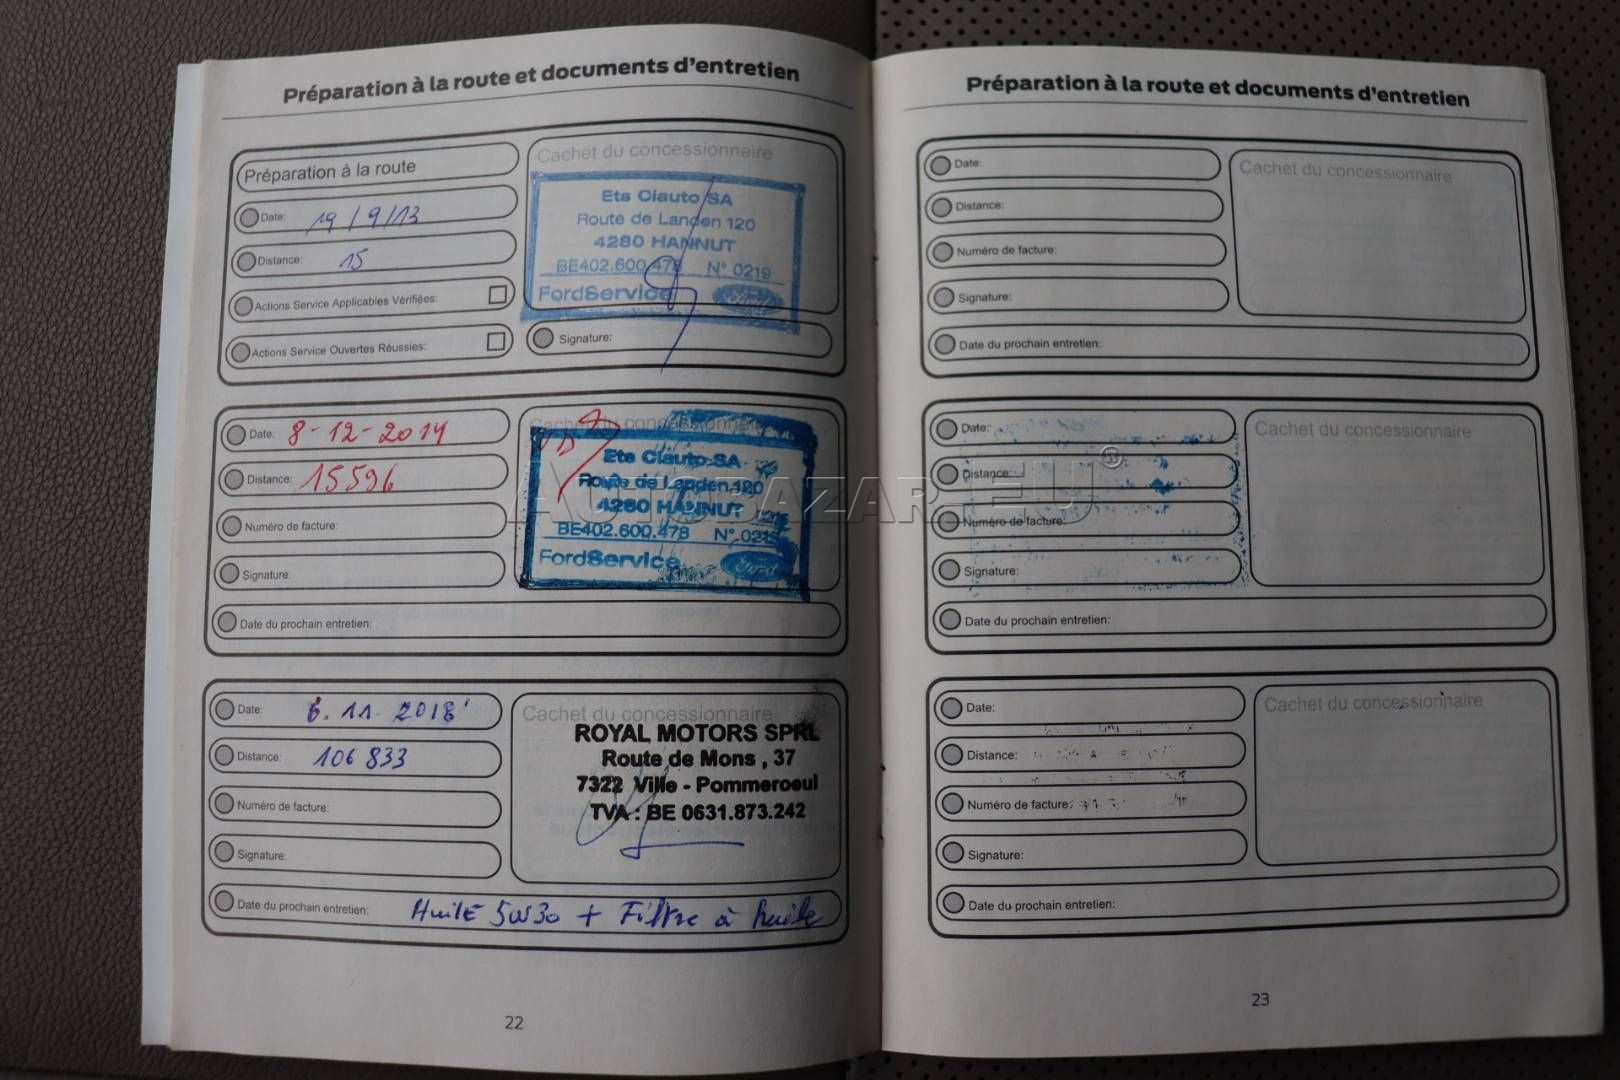 Préparation à la route et documents d'entretien
Préparation à la route
Date: 19/9/13
Distance: 15
Actions Service Applicables Vérifiées:
Actions Service Ouvertes Réussies:
Cachet du concessionnaire
Ets Clauto SA
Route de Landen 120
4280 HANNUT
BE402.600.478 N° 0219
FordService Ford
Signature:
Date: 8-12-2014
Distance: 15596
Numéro de facture:
Signature:
Cachet du concessionnaire
Ets Clauto SA
Route de Landen 120
4280 HANNUT
BE402.600.478 N° 0219
FordService Ford
Date du prochain entretien:
Date: 6.11.2018
Distance: 106 833
Numéro de facture:
Signature:
Cachet du concessionnaire
ROYAL MOTORS SPRL
Route de Mons , 37
7322 Ville - Pommeroeul
TVA : BE 0631.873.242
Date du prochain entretien: HuilE 5W30 + Filtre à huile
22
Préparation à la route et documents d'entretien
Date:
Distance:
Numéro de facture:
Signature:
Cachet du concessionnaire
Date du prochain entretien:
Date:
Distance:
Numéro de facture:
Signature:
Cachet du concessionnaire
Date du prochain entretien:
Date:
Distance:
Numéro de facture:
Signature:
Cachet du concessionnaire
Date du prochain entretien:
23
AUTOBAZAR.EU®